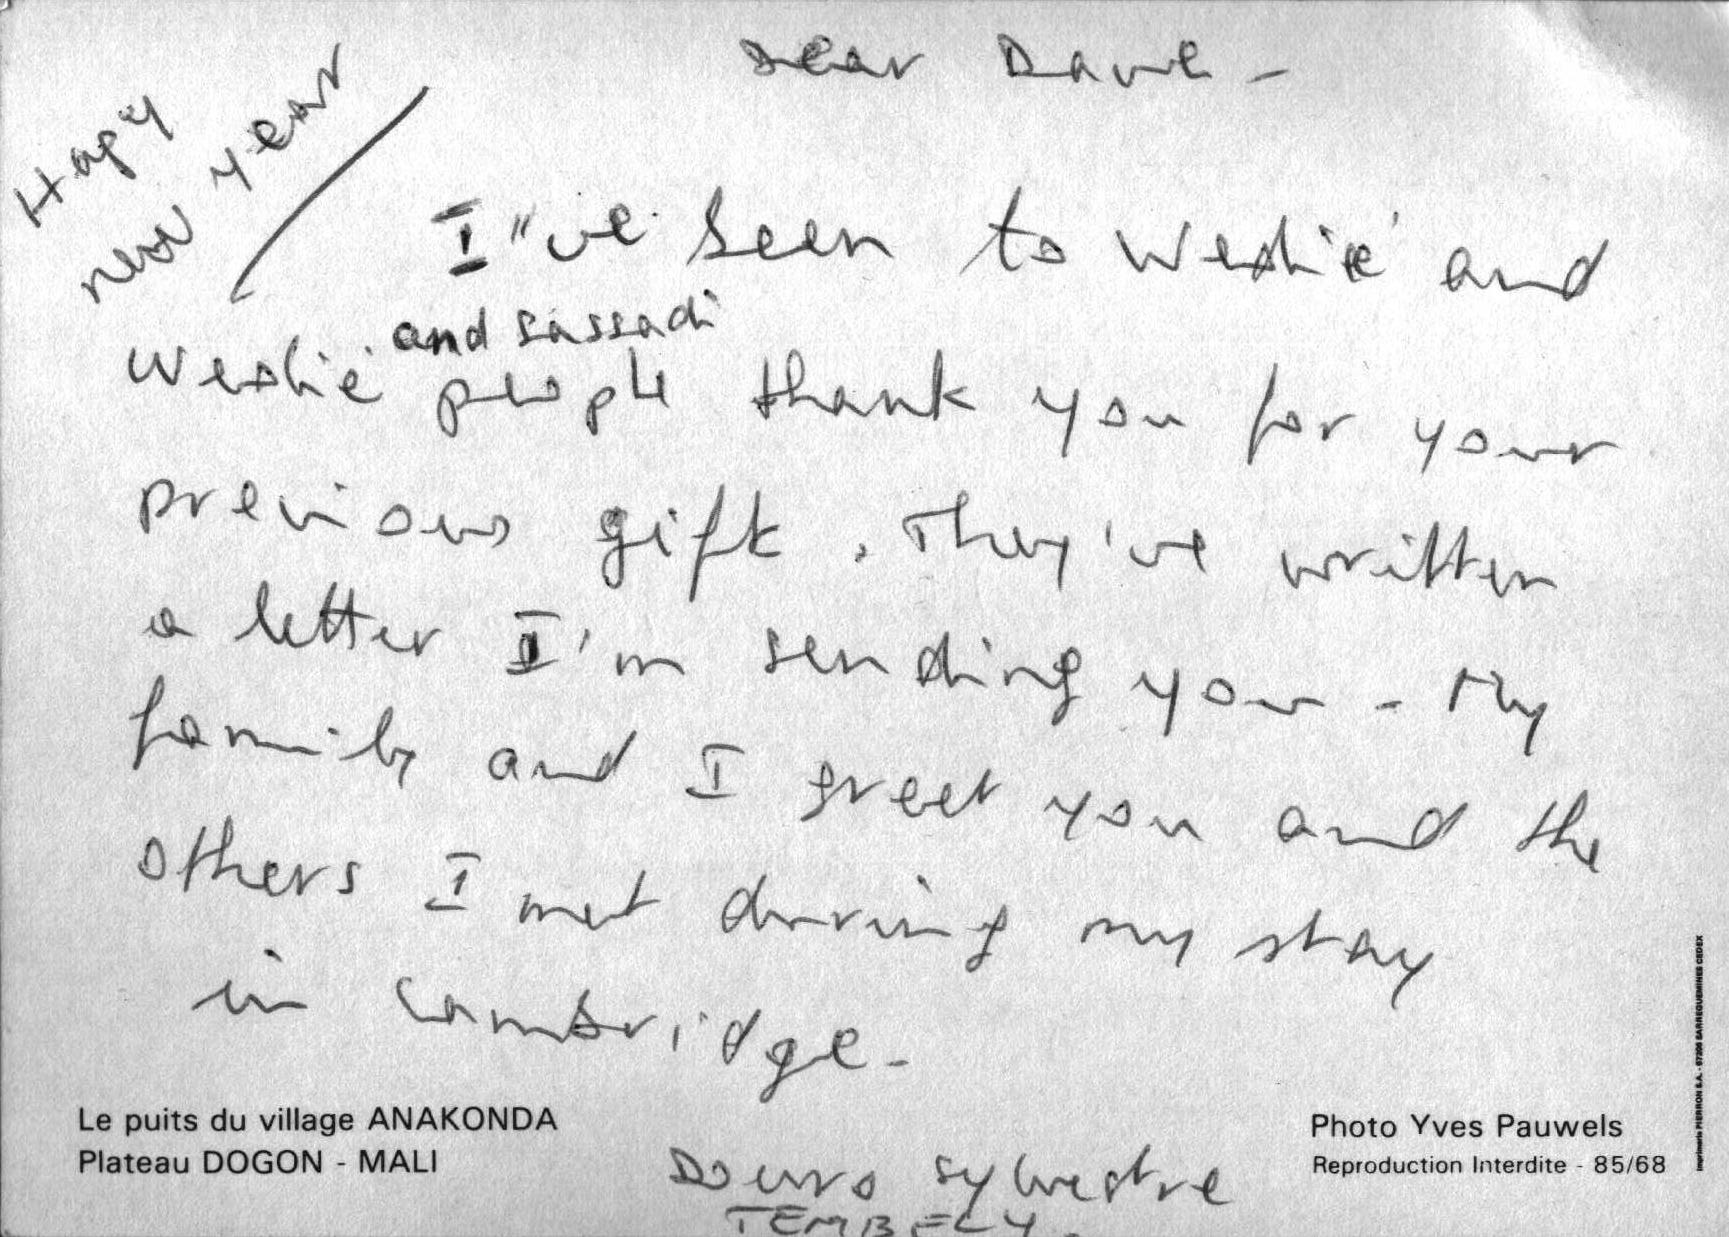 Dear Dave -
Hapy
new year
I "ve been to Weslié and
and sassadi
Weslié people thank you for your
previous gift. They've written
a letter I'm sending you - My
family and I greet you and the
others I met during my stay
in Cambridge -
Le puits du village ANAKONDA
Plateau DOGON - MALI
Photo Yves Pauwels
Reproduction Interdite - 85/68
Imprimerie PIERRON S.A. - 57206 SARREGUEMINES CEDEX
Douro Sylvestre
TEMBELY.